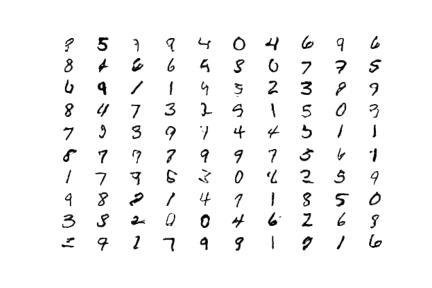 8 5 7 9 4 0 4 6 9 6
8 4 6 6 5 8 0 7 7 5
6 9 1 1 9 5 2 3 8 9
8 4 7 3 2 5 1 5 0 3
7 9 3 9 1 4 4 5 1 1
8 7 7 7 9 9 7 5 6 1
1 7 9 5 3 0 2 2 5 9
9 8 8 1 4 7 1 8 5 0
3 8 2 0 0 4 6 2 6 8
2 9 2 7 9 9 1 0 1 6